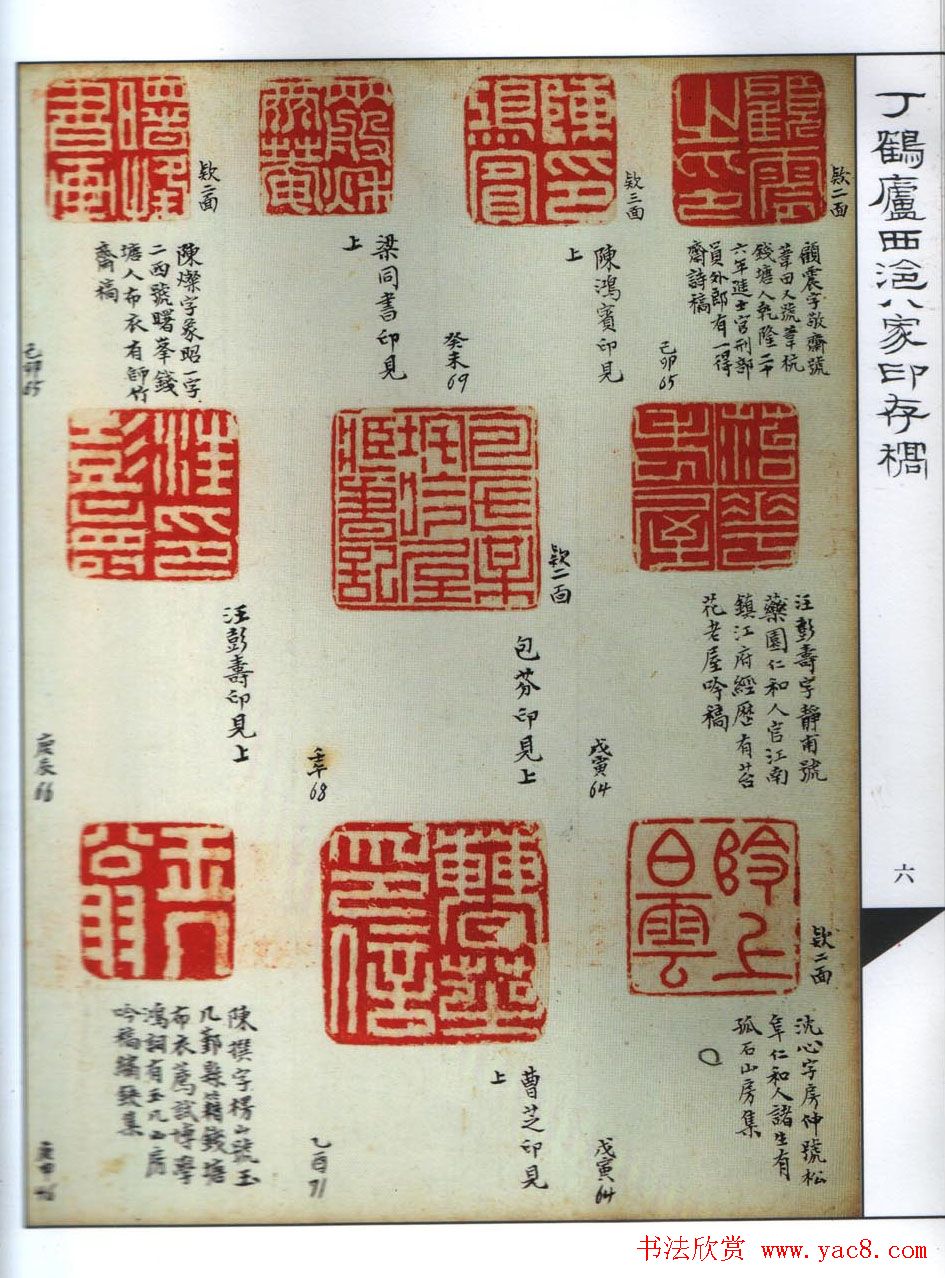 丁鶴廬西泠八家印存稿
六
顧震之印
款二面
顧震字敬齋號
葦田又號葦杭
錢塘人乾隆二十
六年進士官刑部
員外郎有一得
齋詩稿
己卯65
陳鴻賓印
款三面
陳鴻賓印見
上
癸未69
梁同書印見
上
曙峰書畫
款二面
陳燦字象昭一字
二西號曙峯錢
塘人布衣有師竹
齋稿
己卯65
苔花老屋
汪彭壽字靜甫號
藥園仁和人官江南
鎮江府經歷有苔
花老屋吟稿
戊寅64
款二面
包芬印見上
壬午68
汪彭壽印見上
庚辰66
嶺上白雲
款二面
沈心字房仲號松
阜仁和人諸生有
孤石山房集
戊寅64
曹芝印見
上
乙酉71
玉几翁
陳撰字楞山號玉
几鄞縣籍錢塘
布衣薦試博學
鴻詞有玉几山房
吟稿繡鋏集
书法欣赏 www.yac8.com